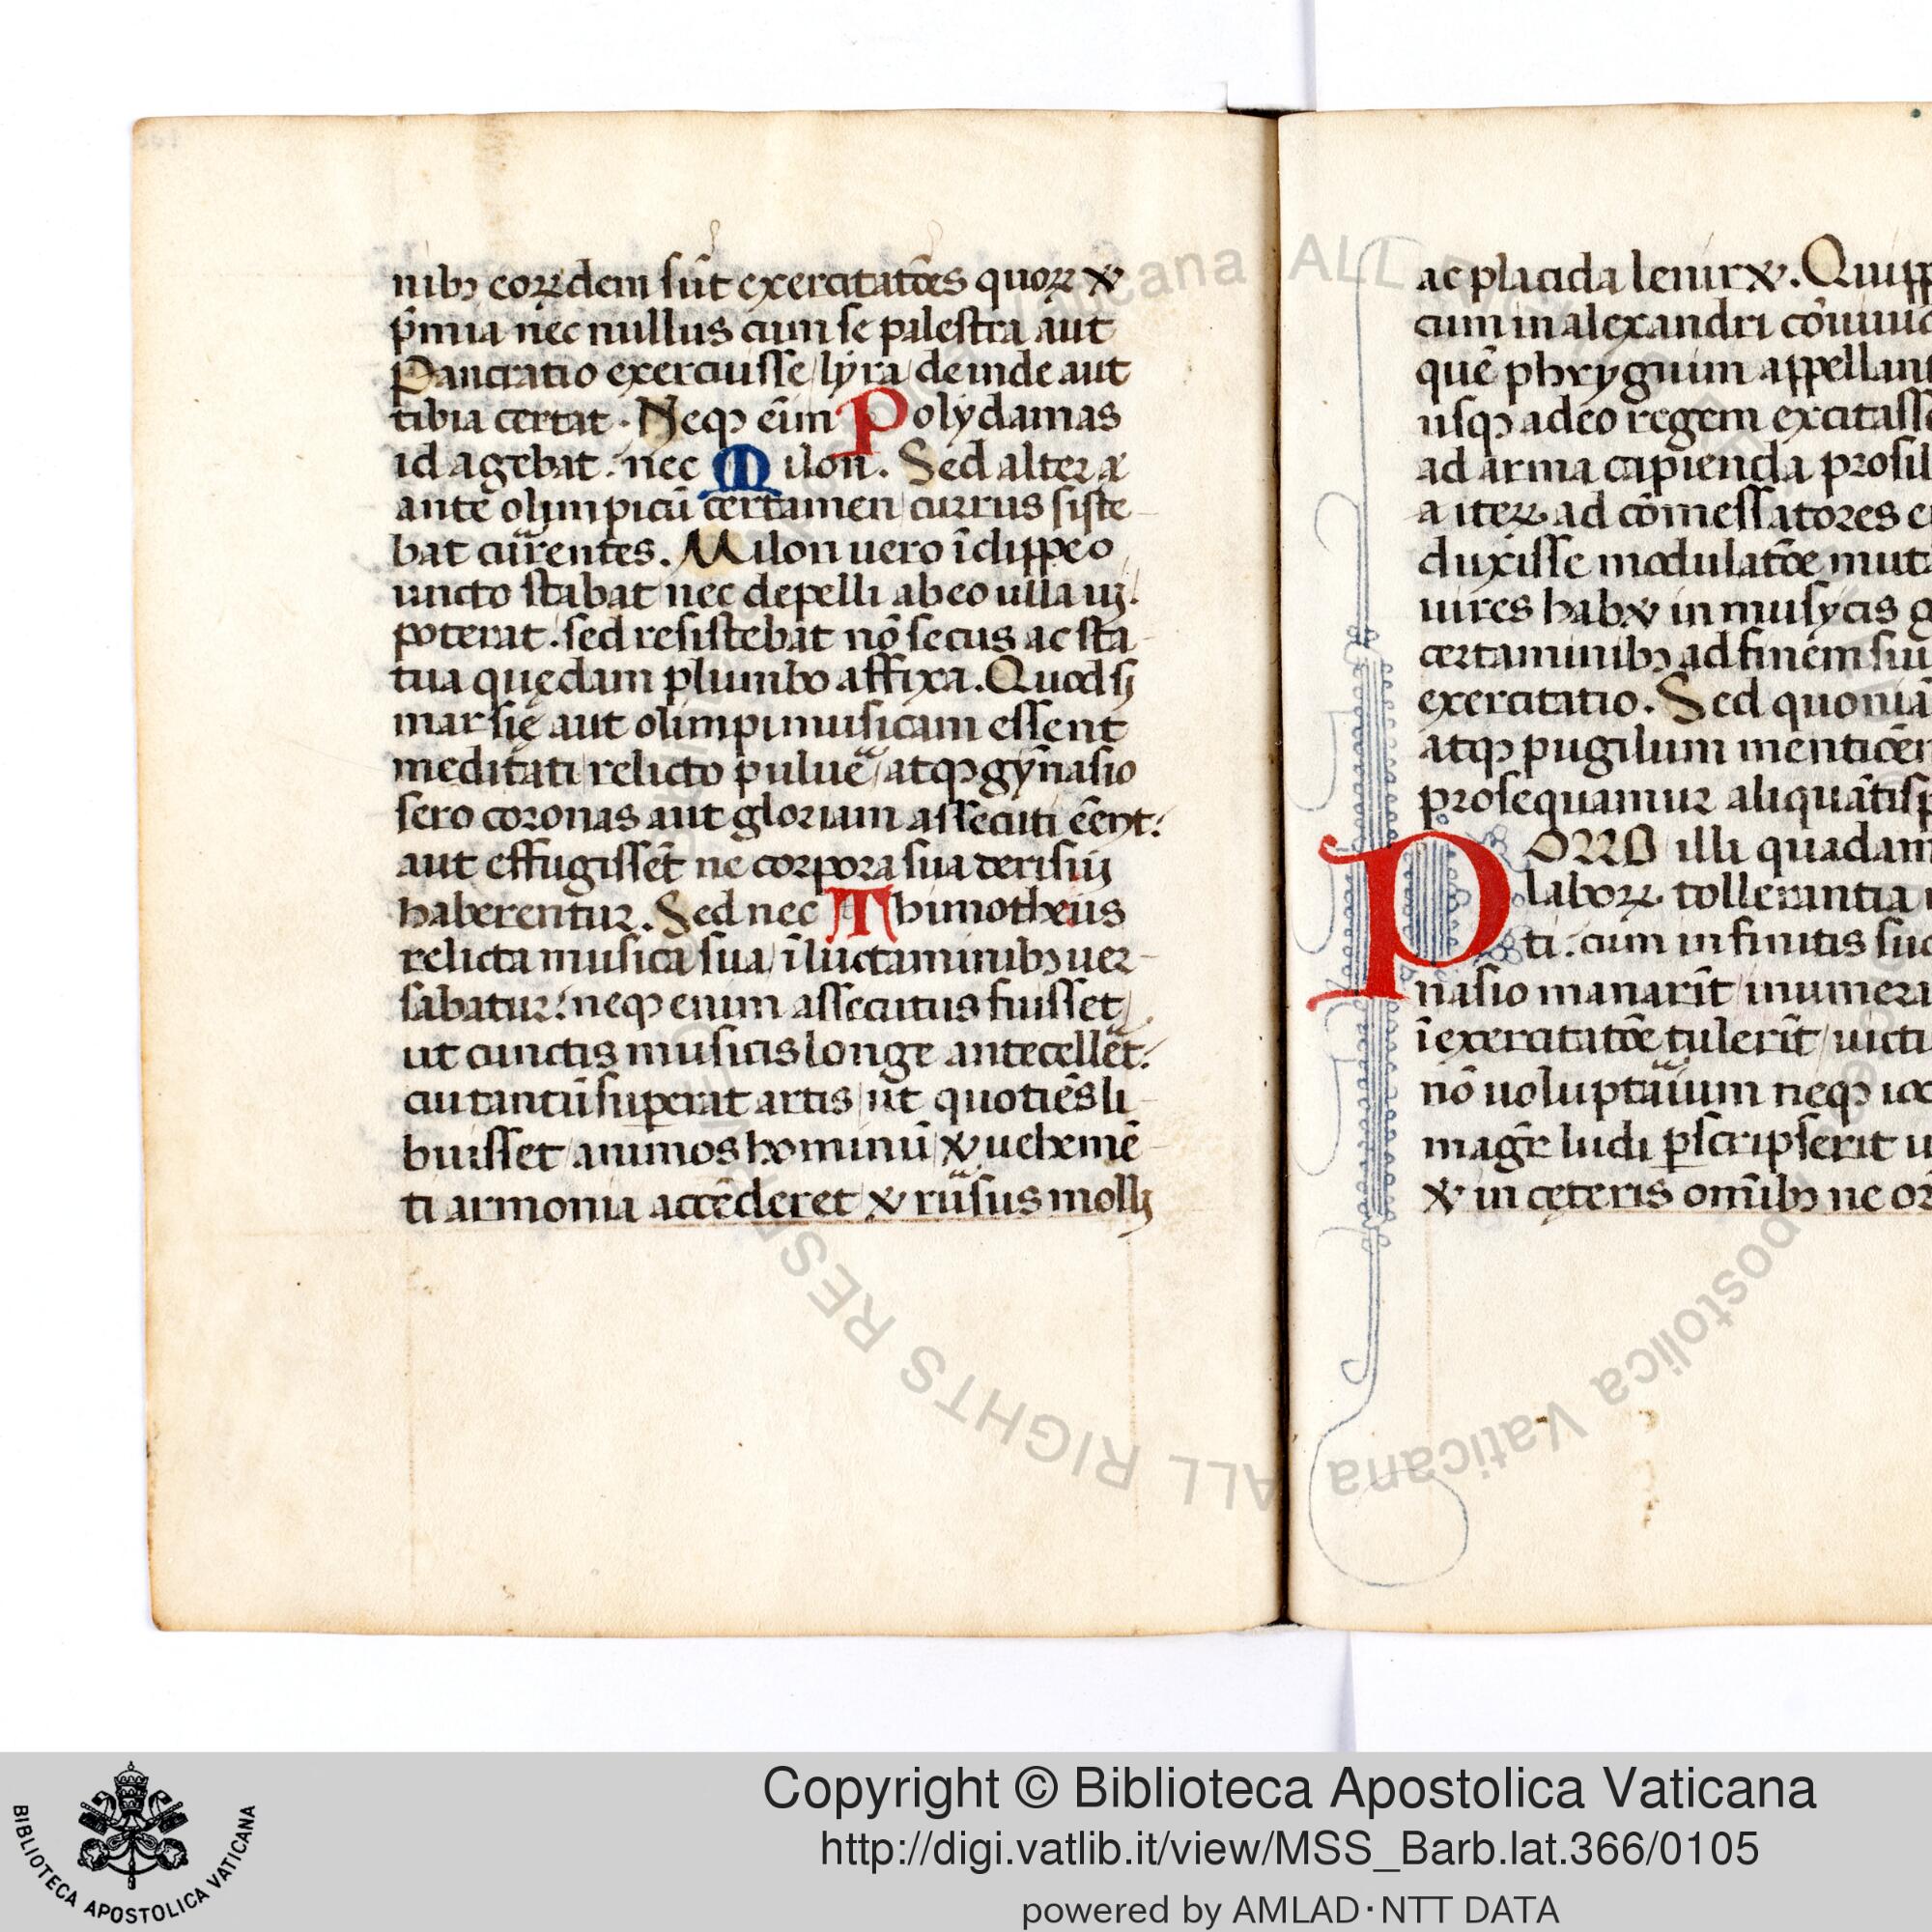 nibꝫ eoꝝdem sūt exercitatōes quoꝝ &
p̄mia nec nullus cum se palestra aut
Pancratio exercuisse/lyra/deinde aut
tibia certat. Neqꝫ eīm Polydamas
id agebat. nec Milon. Sed alter æ
ante olimpicū certamen/currus siste-
bat currentes. Milon uero ī clippeo
uncto stabat nec depelli ab eo ulla uj.
poterat. sed resistebat nō secus ac sta-
tua quędam plumbo affixa. Quod sj
marsię aut olimpi musicam essent
meditati/relicto puluere/atqꝫ gymnasio
sero coronas aut gloriam assecuti ēent:
aut effugissēt ne corpora sua derisuj
haberentur. Sed nec Thimotheus
relicta musica sua/ī luctaminibꝫ uer-
sabatur: neqꝫ enim assecutus fuisset/
ut cunctis musicis longe antecellēt:
cui tantū suꝑerat artis/ut quotiēs li-
buisset/animos hominū/& uehemē-
ti armonia accēderet/& rursus mollj
ac placida lenir&. Quipp
cum in alexandri cōuiuio
quē phrygium appellant
usqꝫ adeo regem excitasse
ad arma capienda prosil
a iteꝝ ad cōmessatores e
duxisse modulatōe muta
uires hab& in musycis
certaminibꝫ ad finem sui
exercitatio. Sed quoniā
atqꝫ pugilum mentiōem
prosequamur aliquātisp
PORRO illi quadam
laboꝝ tollerantia
ti. cum infinitis suc
nasio manarīt/inumera
ī exercitatōe tulerīt/uicti
nō uoluptatum neqꝫ
magr̄ ludi ꝑscripserit
& in cęteris om̄ibꝫ ne
Copyright © Biblioteca Apostolica Vaticana
http://digi.vatlib.it/view/MSS_Barb.lat.366/0105
powered by AMLAD·NTT DATA
BIBLIOTECA APOSTOLICA VATICANA